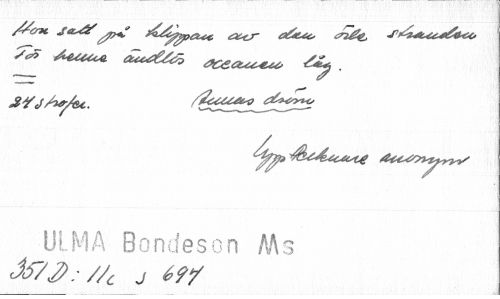 Hon satt på klippan av den öde stranden
För henne ändlös oceanen låg.
24 strofer.
Annas dröm
Upptecknare anonym
ULMA Bondeson Ms
351 D: 11c s 697